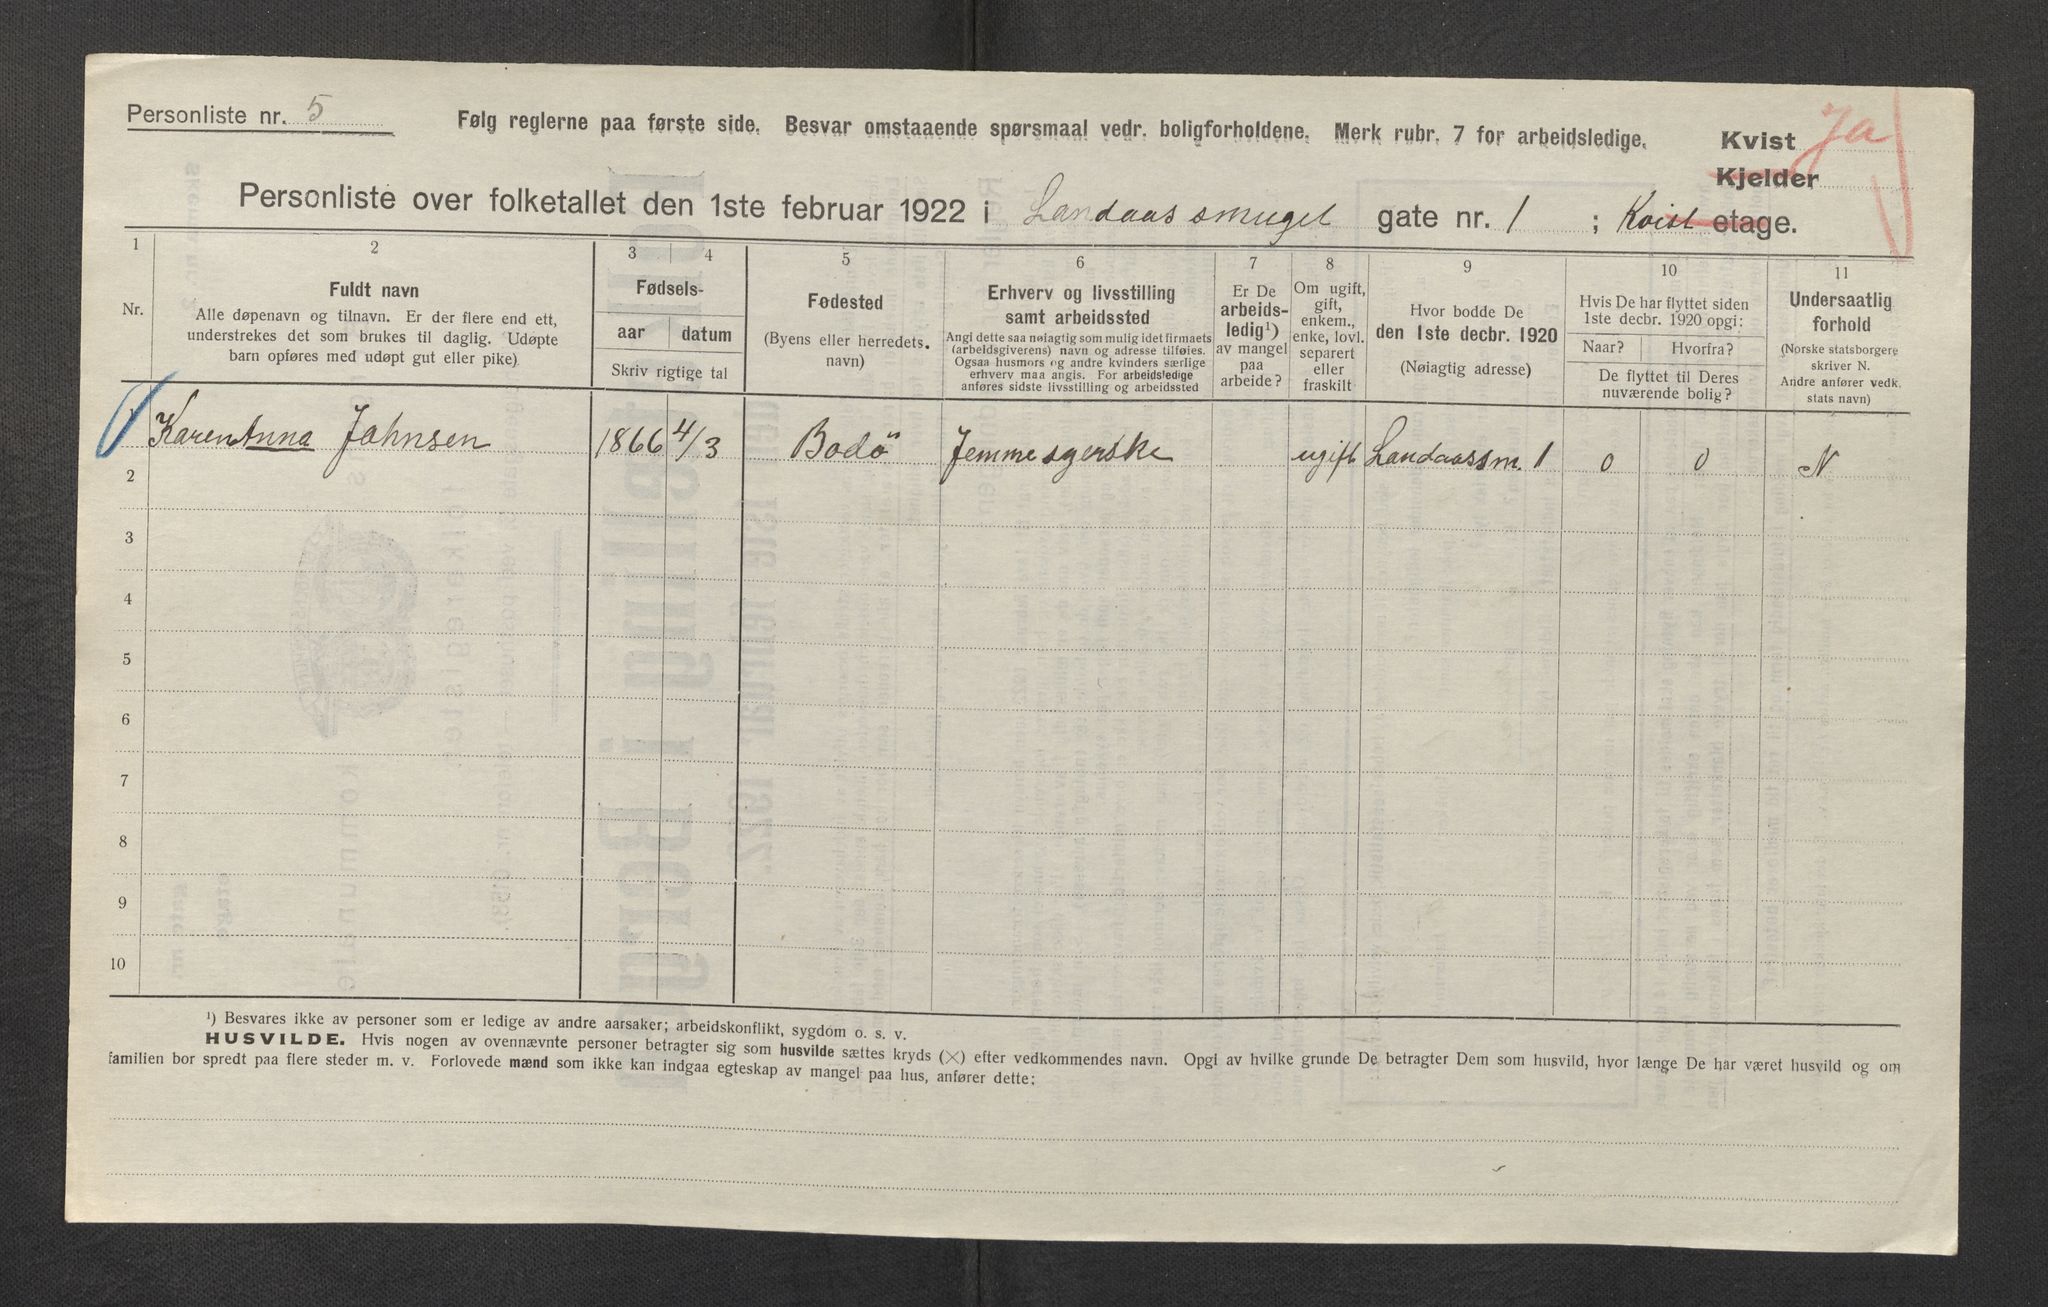 Personliste nr. 5
Følg reglerne paa første side. Besvar omstaaende spørsmaal vedr. boligforholdene. Merk rubr. 7 for arbeidsledige.
Kvist Ja
Kjelder
Personliste over folketallet den 1ste februar 1922 i Landaassmuget gate nr. 1 ; Kvist etage.
1 2 3 4 5 6 7 8 9 10 11
Nr.
Fuldt navn
Alle døpenavn og tilnavn. Er der flere end ett,
understrekes det som brukes til daglig. Udøpte
barn opføres med udøpt gut eller pike)
Fødsels-
aar datum
Skriv rigtige tal
Fødested
(Byens eller herredets.
navn)
Erhverv og livsstilling
samt arbeidssted
Angi dette saa nøiagtig som mulig idet firmaets
(arbeidsgiverens) navn og adresse tilføies.
Ogsaa husmors og andre kvinders særlige
erhverv maa angis. For arbeidsledige
anføres sidste livsstilling og arbeidssted
Er De
arbeids-
ledig¹)
av mangel
paa
arbeide?
Om ugift,
gift,
enkem.,
enke, lovl.
separert
eller
fraskilt
Hvor bodde De
den 1ste decbr. 1920
(Nøiagtig adresse)
Hvis De har flyttet siden
1ste decbr. 1920 opgi:
Naar? Hvorfra?
De flyttet til Deres
nuværende bolig?
Undersaatlig
forhold
(Norske statsborgere
skriver N.
Andre anfører vedk.
stats navn)
1 Karen Anna Johnsen 1866 4/3 Bodö Jemmesyerske ugift Landaassm. 1 0 0 N
2
3
4
5
6
7
8
9
10
¹) Besvares ikke av personer som er ledige av andre aarsaker; arbeidskonflikt, sygdom o. s. v.
HUSVILDE. Hvis nogen av ovennævnte personer betragter sig som husvilde sættes kryds (×) efter vedkommendes navn. Opgi av hvilke grunde De betragter Dem som husvild, hvor længe De har været husvild og om
familien bor spredt paa flere steder m. v. Forlovede mænd som ikke kan indgaa egteskap av mangel paa hus, anfører dette: